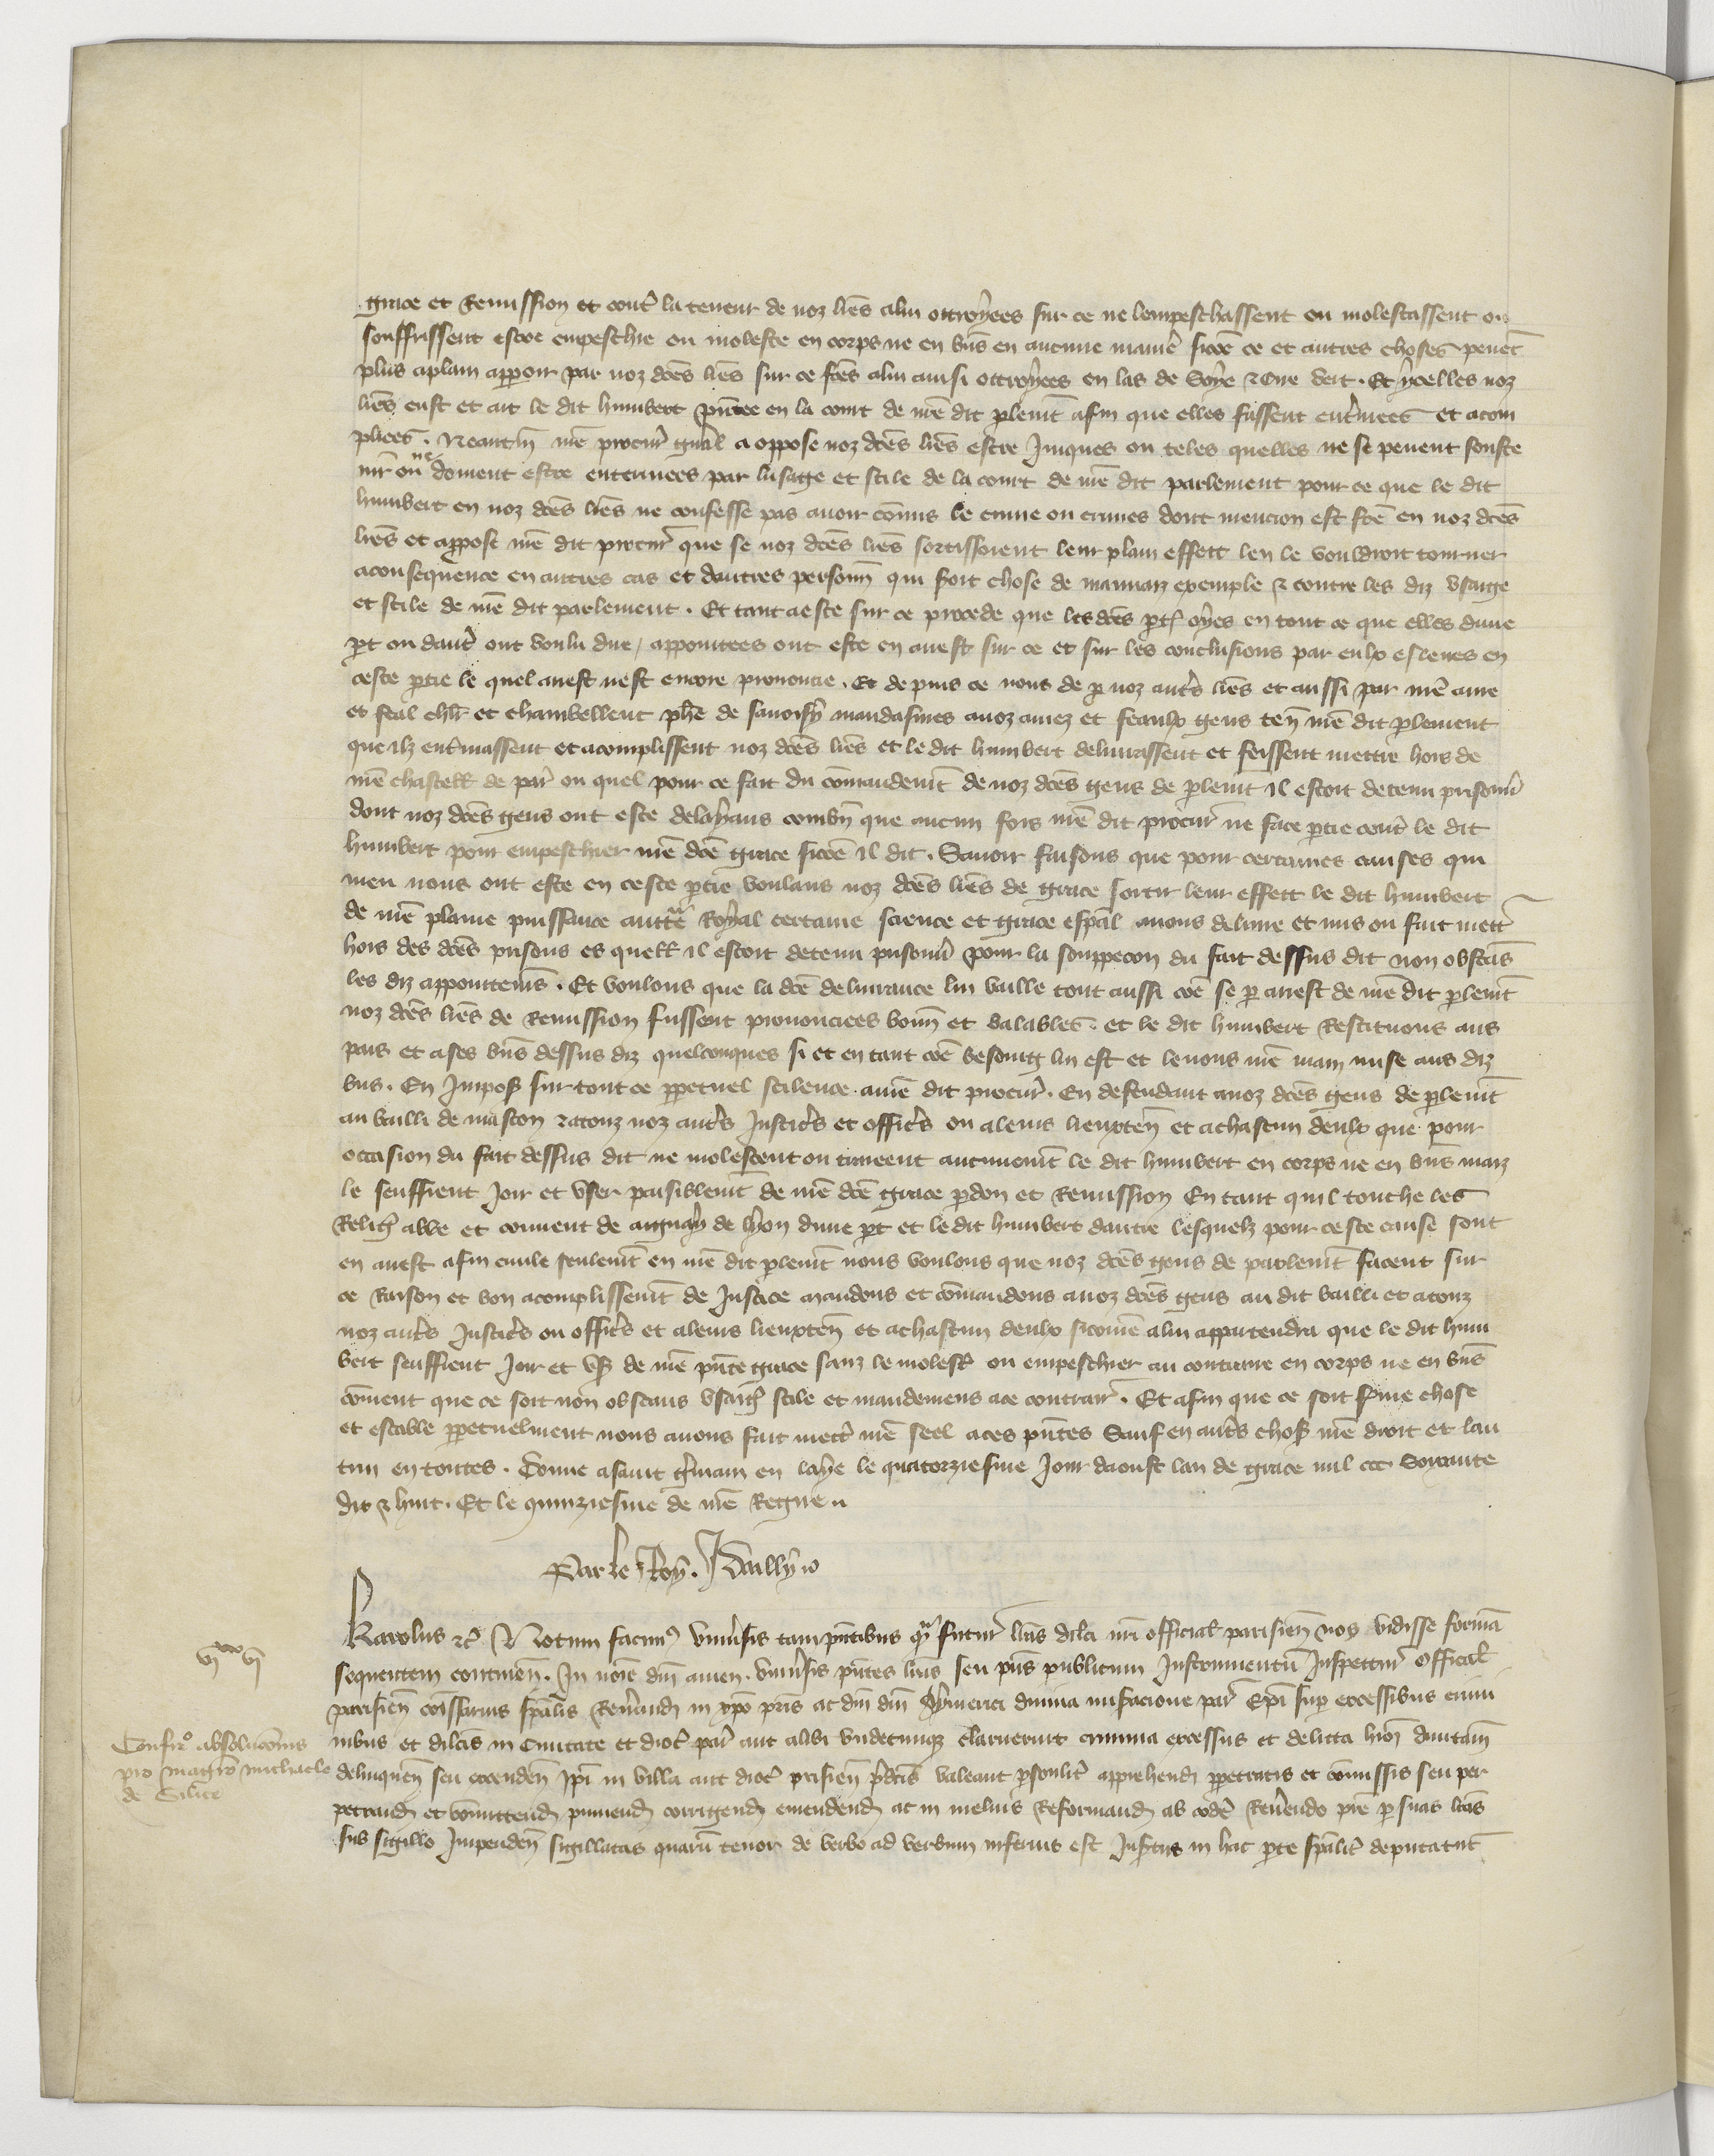 grace et Remission et contr̃ la teneur de noz lr̃es a lui ottroyees sur ce ne lempeschassent ou molestassent ou
souffrissent estre empeschie ou moleste en corps ne en bñs en aucune manie͛ sicõe ce et autres choses peuet̃
plus aplain apparoir par noz dc̃es lr̃es sur ce fc̃es a lui ainsi ottroyees en las de Soye & Cire vert. Et ycelles noz
lr̃es eust et ait le dit humbert pñtee en la court de nr̃e dit plemt̃ afin que elles fussent ent̃inees et acom
pliees. Neantm̃ nr̃e procur̃ gñal a oppose noz dc̃es lr̃es estre Iniques ou teles quelles ne se peuent souste
nir ou ne doivent estre enterinees par lusage et stile de la court de nr̃e dit parlement pour ce que le dit
humbert en noz dc̃es lr̃es ne confesse pas auoir cõmis le crime ou crimes dont mencion est fc̃e en noz dc̃es
lr̃es et appose nr̃e dit procur̃ que se noz dc̃es lr̃es sortissoient leur plain effect len le vouldroit tourner
a consequence en autres cas et dautres personñ qui seroit chose de mauuaiz exemple & contre les diz vsaige
et stile de nr̃e dit parlement. Et tant a este sur ce procede que les dc̃es pt̃ oyes en tout ce que elles dune
pt̃ ou daut̃ ont voulu dire, appointees ont este en arrest sur ce et sur les conclusions par eulx esleues en
ceste ptie le quel arrest nest encore prononcie. Et de puis ce nous de p noz aut̃s lr̃es et aussi par nr̃e ame
et feal chlr̃ et chambellent phe de sauoisy mandasmes a noz amez et feaulx gens teñ nr̃e dit plement
que ilz ent̃inassent et acomplissent noz dc̃es lr̃es et le dit humbert deliurassent et feissent mettre hors de
nr̃e chastell̃ de par̃ ou quel pour ce fait du cõmandemt̃ de noz dc̃es gens de plemt̃ il estoit detenu prisonñ
dont noz dc̃es gens ont este delayans combñ que aucun fois nr̃e dit procur̃ ne face ptie cont̃ le dit
humbert pour empeschier nr̃e dc̃e grace sicõe il dit. Sauoir faisons que pour certaines causes qui
meu nous ont este en ceste ptie voulans noz dc̃es lr̃es de grace sortir leur effect le dit humbert
de nr̃e plaine puissance auctte͛ Royal certaine science et grace esp̃al auons deliure et mis ou fait mett̃
hors des dc̃es prisons es quell̃ il estoit detenu prisonñ pour la souppecon du fait dessus dit non obstãs
les diz appointemẽs. Et voulons que la dc̃e deliurance lui vaille tout aussi cõe se p arrest de nr̃e dit plemt̃
noz dc̃es lr̃es de Remission fussent prononciees bonñ et valables. et le dit humbert Restituons aus
pais et a ses bñs dessus diz quelconques si et en tant cõe besoing lui est et leuons nr̃e main mise aus diz
bñs. En Impos̃ sur tout ce ppetuel scilence a nr̃e dit procur̃. En defendant a noz dc̃es gens de plemt̃
au bailli de mascon & a touz noz aut̃s Justic̃s et offic̃s ou a leurs lieuxteñ et a chascun deulx que pour
occasion du fait dessus dit ne molestent ou [...] aucunemt̃ le dit humbert en corps ne en bñs maiz
le seuffrent Joir et vser paisiblemt̃ de nr̃e dc̃e grace pdon et Remission En tant quil touche les
Relig̃ abbe et conuent de aisnay de lyon dune pt̃ et le dit humbert dautre lesquelz pour ceste cause sont
en arrest afin ciuile seulemt̃ en nr̃e dit plemt̃ nous voulons que noz dc̃es gens de parlemt̃ facent sur
ce Raison et bon acomplissemt̃ de Justice mandons et cõmandons a noz dc̃es gens au dit bailli et a touz
noz aut̃s Justic̃s ou offic̃s et a leurs lieuxteñ et a chascun deulx sicom̃e a lui appartendra que le dit hum
bert seuffrent Joir et vs̃ de nr̃e pñte grace sanz le molest̃ ou empeschier au contraire en corps ne en bñs
cõment que ce soit non obstans vsaig̃ stile et mandemens a ce contrair̃. Et afin que ce soit ferme chose
et estable ppetuelment nous auons fait mett̃ nr̃e seel a ces pñtes Sauf en aut̃s chos̃ nr̃e droit et lau
trui en toutes. Donne a saint g̃main en laye le quatorziesme Jour daoust lan de grace mil ccc. soixante
dix & huit. Et le quinziesme de nr̃e Regne.
Par le Roy. J Dailly
vjxx vj
Karolus &c̃ Notum facimꝰ vniũsis tam pñtibus q̃ futur̃ lr̃as dil̃ci nr̃i official̃ parisieñ nos vidisse formã
sequentem contineñ. In noĩe dñi amen. vniũsis pñtes lr̃as seu pñs publicum Instrumentũ Inspectur̃ Official̃
parisieñ cõissarius sp̃alis Reũendi in xp̃o pr̃is ac dñi dñi Aymerici diuina miseracione par̃ Ep̃i sup̃ excessibus crimi
nibus et dilc̃is in Ciuitate et dioc̃ par̃ aut alibi vndecunq̃ claruerint crimina excessus et delicta hiõi dumtax̃
Confir̃o absoluc̃onis
pro magr̃o michaele
de Silice
delinqueñ seu excedeñ ip̃i in villa aut dioc̃ prisieñ p̃dc̃is valeant psonalit̃ apprehendi ppetratis et cõmissis seu per
petrand̃ et cõmittend̃ puniend̃ corrigend̃ emendend̃ ac in melius Reformand̃ ab eodẽ Reũendo pr̃e p suas lr̃as
suo sigillo Impendeñ sigillatas quarũ tenor de verbo ad verbum inferius est Insertus in hac pte sp̃alit̃ deputatut̃